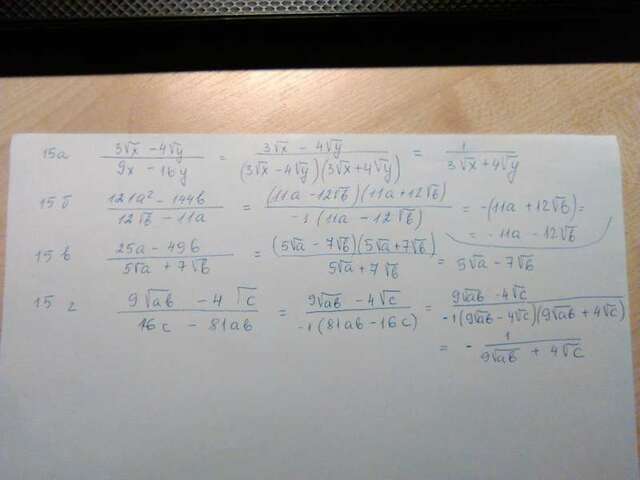 15а (3√x − 4√y)/(9x − 16y) = (3√x − 4√y)/((3√x − 4√y)(3√x + 4√y)) = 1/(3√x + 4√y)
15 б (121a² − 144b)/(12√b − 11a) = ((11a − 12√b)(11a + 12√b))/(−1(11a − 12√b)) = −(11a + 12√b) =
= −11a − 12√b
15 в (25a − 49b)/(5√a + 7√b) = ((5√a − 7√b)(5√a + 7√b))/(5√a + 7√b) = 5√a − 7√b
15 г (9√ab − 4√c)/(16c − 81ab) = (9√ab − 4√c)/(−1(81ab − 16c)) = (9√ab − 4√c)/(−1(9√ab − 4√c)(9√ab + 4√c))
= − 1/(9√ab + 4√c)